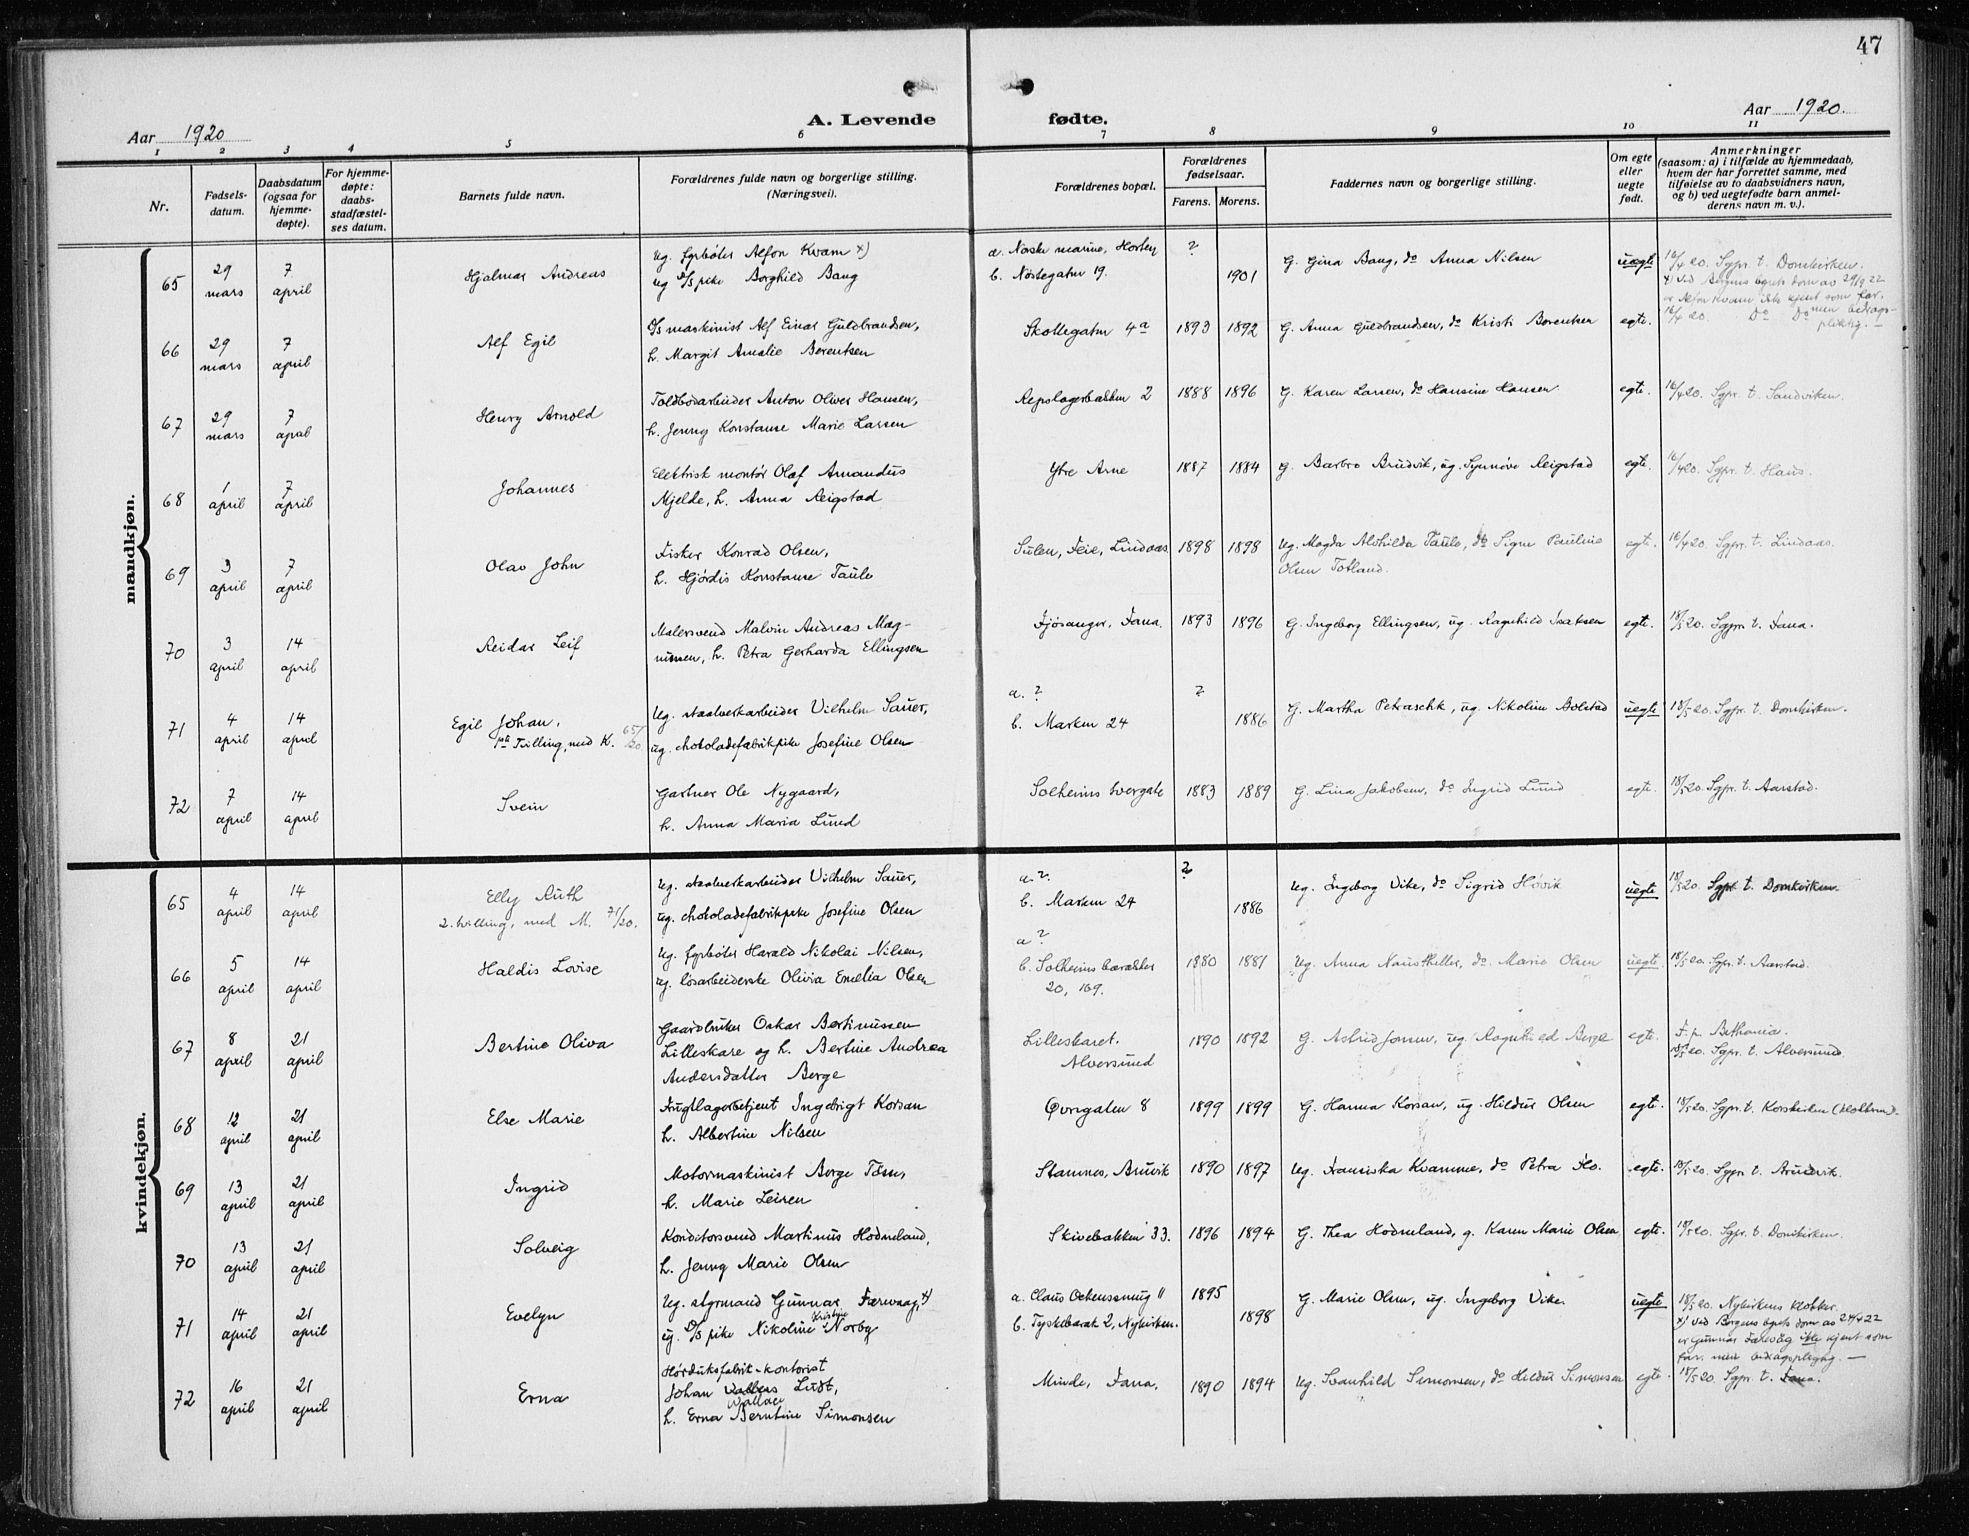 47
Aar 1920
A. Levende fødte.
Aar 1920.
1 2 3 4 5 6 7 8 9 10 11
Nr.
Fødsels-
datum.
Daabsdatum
(ogsaa for
hjemme-
døpte).
For hjemme-
døpte:
daabs-
stadfæstel-
ses datum.
Barnets fulde navn.
Forældrenes fulde navn og borgerlige stilling.
(Næringsvei).
Forældrenes bopæl.
Forældrenes
fødselsaar.
Farens. Morens.
Faddernes navn og borgerlige stilling.
Om egte
eller
uegte
født.
Anmerkninger
(saasom: a) i tilfælde av hjemmedaab,
hvem der har forrettet samme, med
tilføielse av to daabsvidners navn,
og b) ved uegtefødte barn anmel-
derens navn m. v.).
mandkjøn.
65 29 mars 7 april Hjalmar Andreas
Ug. fyrbøter Alfon Kvam x)
ug D/s pike Borghild Bang
a. Norske marine, Horten
b. Nøstegaten 19.
? 1901
G. Gina Bang, do Anna Nilsen
uegte
16/4 20. Sgpr. t. Domkirken.
x) Ved Bergens byrets dom av 29/9 22
er Alfon Kvam ikke kjent som far,
men bidrags-
pliktig. —
66 29 mars 7 april Alf Egil
D/s maskinist Alf Einar Guldbrandsen,
h. Margit Amalie Berentsen
Skottegaten 4a 1893 1892
G. Anna Guldbrandsen, do Kristi Berentsen
egte.
16/4 20. Do Do
67 29 mars 7 april Henry Arnold
Toldbodarbeider Anton Oliver Hansen,
h. Jenny Konstanse Marie Larsen
Repslagerbakken 2 1888 1896
G. Karen Larsen, do Hansine Hansen
egte.
16/4 20. Sgpr. t. Sandviken.
68 1 april 7 april Johannes
Elektrisk montør Olaf Amandus
Mjelde, h. Anna Reigstad
Ytre Arne 1887 1884
g. Barbro Brudvik, ug. Synnøve Reigstad
egte.
16/4 20. Sgpr. t. Haus.
69 3 april 7 april Olav John
Fisker Konrad Olsen,
h. Hjørdis Konstanse Taule
Sulen, Feie, Lindaas 1898 1898
Ug. Magda Alvhilda Taule, do Signe Pauline
Olsen Totland.
egte.
16/4 20. Sgpr. t. Lindaas.
70 3 april 14 april Reidar Leif
Malersvend Malvin Andreas Mag-
nussen, h. Petra Gerharda Ellingsen
Fjøsanger, Fana. 1893 1896
G. Ingeborg Ellingsen, ug. Ragnhild Isaksen
egte.
18/5 20. Sgpr. t. Fana.
71 4 april 14 april Egil Johan,
1ste Tvilling, med K. 65/20
Ug. staalverkarbeider Vilhelm Sauer,
ug. chokoladefabrikpike Josefine Olsen
a. ?
b. Marken 24
? 1886
G. Martha Petraschk, ug. Nikoline Bolstad
uegte
18/5 20. Sgpr. t. Domkirken.
72 7 april 14 april Svein
Gartner Ole Nygaard,
h. Anna Maria Lund
Solheims tvergate 1883 1889
G. Lina Jakobsen, do Ingrid Lund
egte.
18/5 20. Sgpr. t. Aarstad.
kvindekjøn.
65 4 april 14 april Elly Ruth
2. tvilling, med M. 71/20.
Ug. staalverkarbeider Vilhelm Sauer,
ug. chokoladefabrikpike Josefine Olsen
a. ?
b. Marken 24
? 1886
Ug. Ingeborg Vike, do Sigrid Høvik
uegte
18/5 20. Sgpr. t. Domkirken.
66 5 april 14 april Haldis Lovise
Ug. fyrbøter Harald Nikolai Nilsen,
ug. løsarbeiderske Olivia Emelia Olsen
a ?
b. Solheims barakker
20, 169.
1880 1881
Ug. Anna Naustheller, do Marie Olsen
uegte.
18/5 20. Sgpr. t. Aarstad.
67 8 april 21 april Bertine Oliva
Gaardbruker Oskar Bertinussen
Lilleskare og h. Bertine Andrea
Andersdatter Berge
Lilleskaret.
Alversund
1890 1892
G. Astrid Jonsen, ug. Ragnhild Berge
egte.
F. p. Bethania.
18/5 20. Sgpr. t. Alversund.
68 12 april 21 april Else Marie
Frugtlagerbetjent Ingebrigt Korsan
h. Albertine Nilsen
Øvregaten 8 1899 1899
G. Hanna Korsan, ug. Hildur Olsen
egte.
18/5 20. Sgpr. t. Korskirken
69 13 april 21 april Ingrid
Motormaskinist Berge Tøsse,
h. Marie Leiren
Stamnes, Bruvik 1890 1897
Ug. Fransiska Kvamme, do Petra Flo.
egte.
18/5 20. Sgpr. t. Bruvik.
70 13 april 21 april Solveig
Konditorsvend Martinus Hodneland,
h. Jenny Marie Olsen
Skivebakken 33. 1896 1894
G. Thea Hodneland, g. Karen Marie Olsen
egte.
18/5 20. Sgpr. t. Domkirken.
71 14 april 21 april Evelyn
Ug. styrmand Gunnar Færevaag, x)
ug. D/s pike Nikoline Kristine Norby
a. Claus Ockenssmug 11
b. Tyskebarak 2, Nykirken.
1895 1898
G. Marie Olsen, ug. Ingeborg Vike.
uegte
18/5 20. Nykirkens klokker.
x) Ved Bergens byrets dom av 24/4 22
er Gunnar Færevåg ikke kjent som
far, men bidragspliktig. —
72 16 april 21 april Erna
Hørduksfabrik-kontorist
Johan Wallace Lust,
h. Erna Berntine Simonsen
Minde, Fana. 1890 1894
Ug. Svanhild Simonsen, do Hildur Simonsen
egte.
18/5 20. Sgpr. t. Fana.